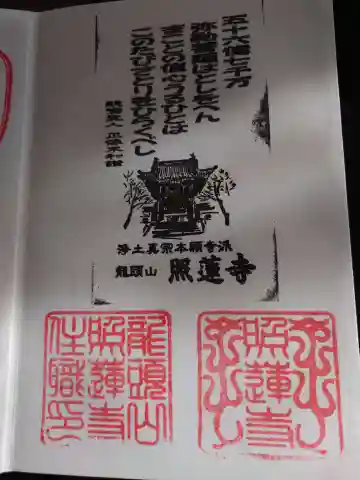 五十六億七千万
弥勒菩薩はとしをへん
まことの信心うるひとは
このたびさとりをひらくべし
親鸞聖人 正像末和讃
浄土真宗本願寺派
龍頭山 照蓮寺
龍頭山
照蓮寺
住職印
照蓮寺